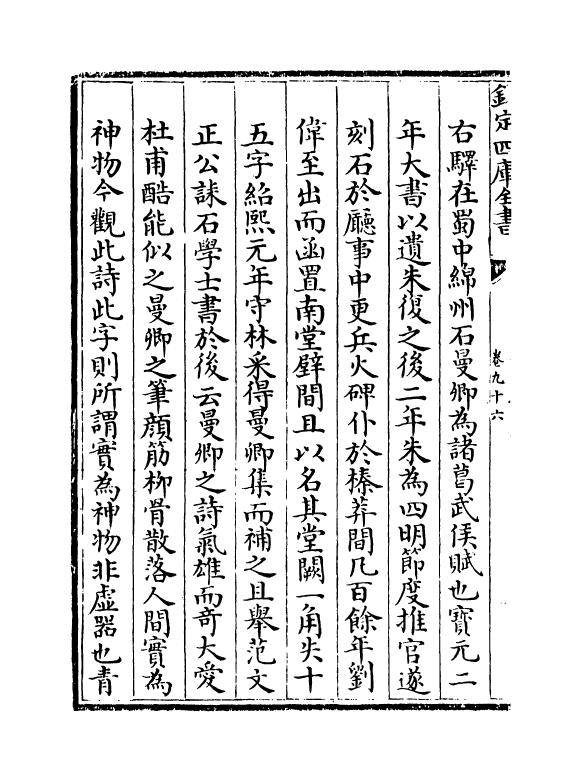 欽定四庫全書
卷九十六
右驛在蜀中綿州石曼卿為諸葛武侯賦也寳元二
年大書以遺朱復之後二年朱為四明節度推官遂
刻石於廳事中更兵火碑仆於榛莽間凡百餘年劉
偉至出而函置南堂壁間且以名其堂闕一角失十
五字紹熙元年守林采得曼卿集而補之且舉范文
正公誄石學士書於後云曼卿之詩氣雄而竒大愛
杜甫酷能似之曼卿之筆顔筋柳骨散落人間實為
神物今觀此詩此字則所謂實為神物非虛器也青